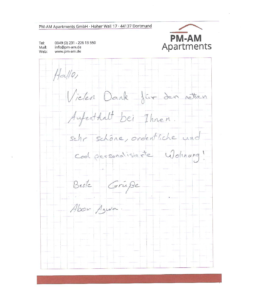 PM-AM Apartments GmbH · Hoher Wall 17 · 44137 Dortmund
PM-AM
Apartments
Tel
Mail info@pm-am.de
Web www.pm-am.de
Hallo,
Vielen Dank für den netten
Aufenthalt bei Ihnen.
Sehr schöne, ordentliche und
Wohnung!
Beste Grüße